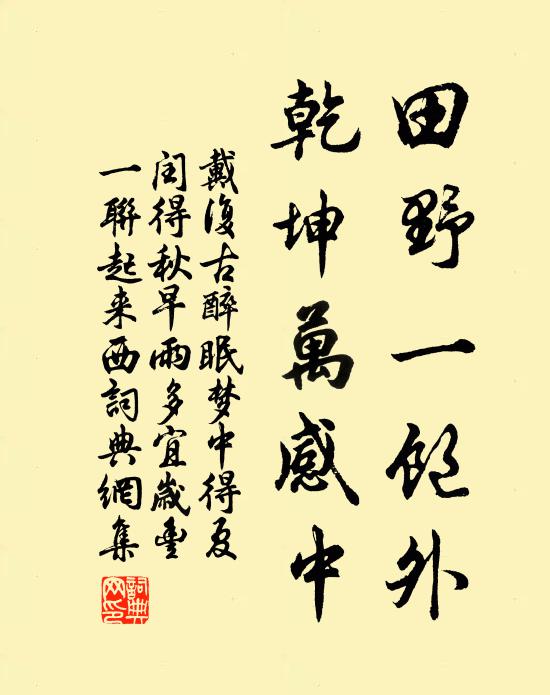 田野一飽外
乾坤萬感中
戴復古醉眠梦中得夏
閏得秋早雨多宜歲豐
一聯起来西詞典網集
詞典